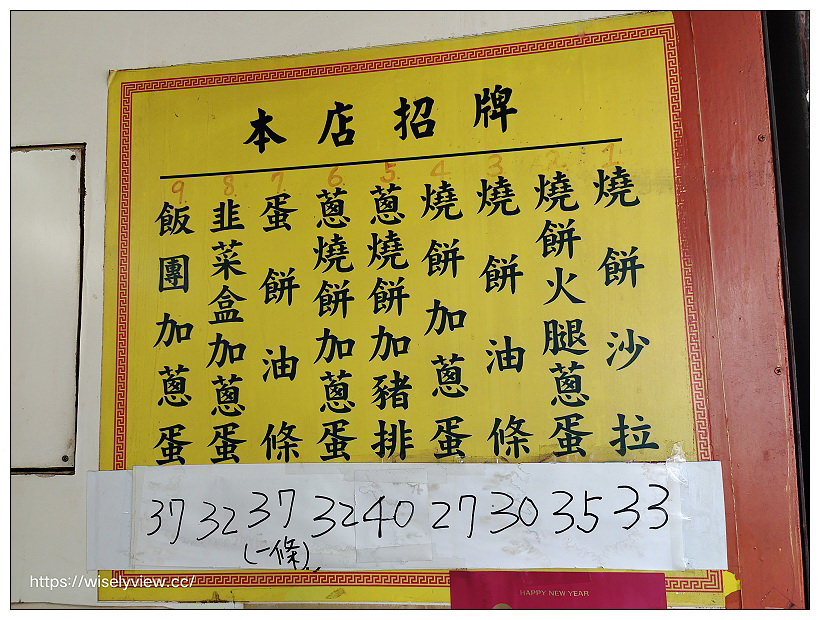 本店招牌
1. 燒餅沙拉 33
2. 燒餅火腿蔥蛋 35
3. 燒餅油條 30
4. 燒餅加蔥蛋 27
5. 蔥燒餅加豬排 40
6. 蔥燒餅加蔥蛋 32
7. 蛋餅油條 37 (一條)
8. 韭菜盒加蔥蛋 32
9. 飯團加蔥蛋 37
HAPPY NEW YEAR
https://wiselyview.cc/